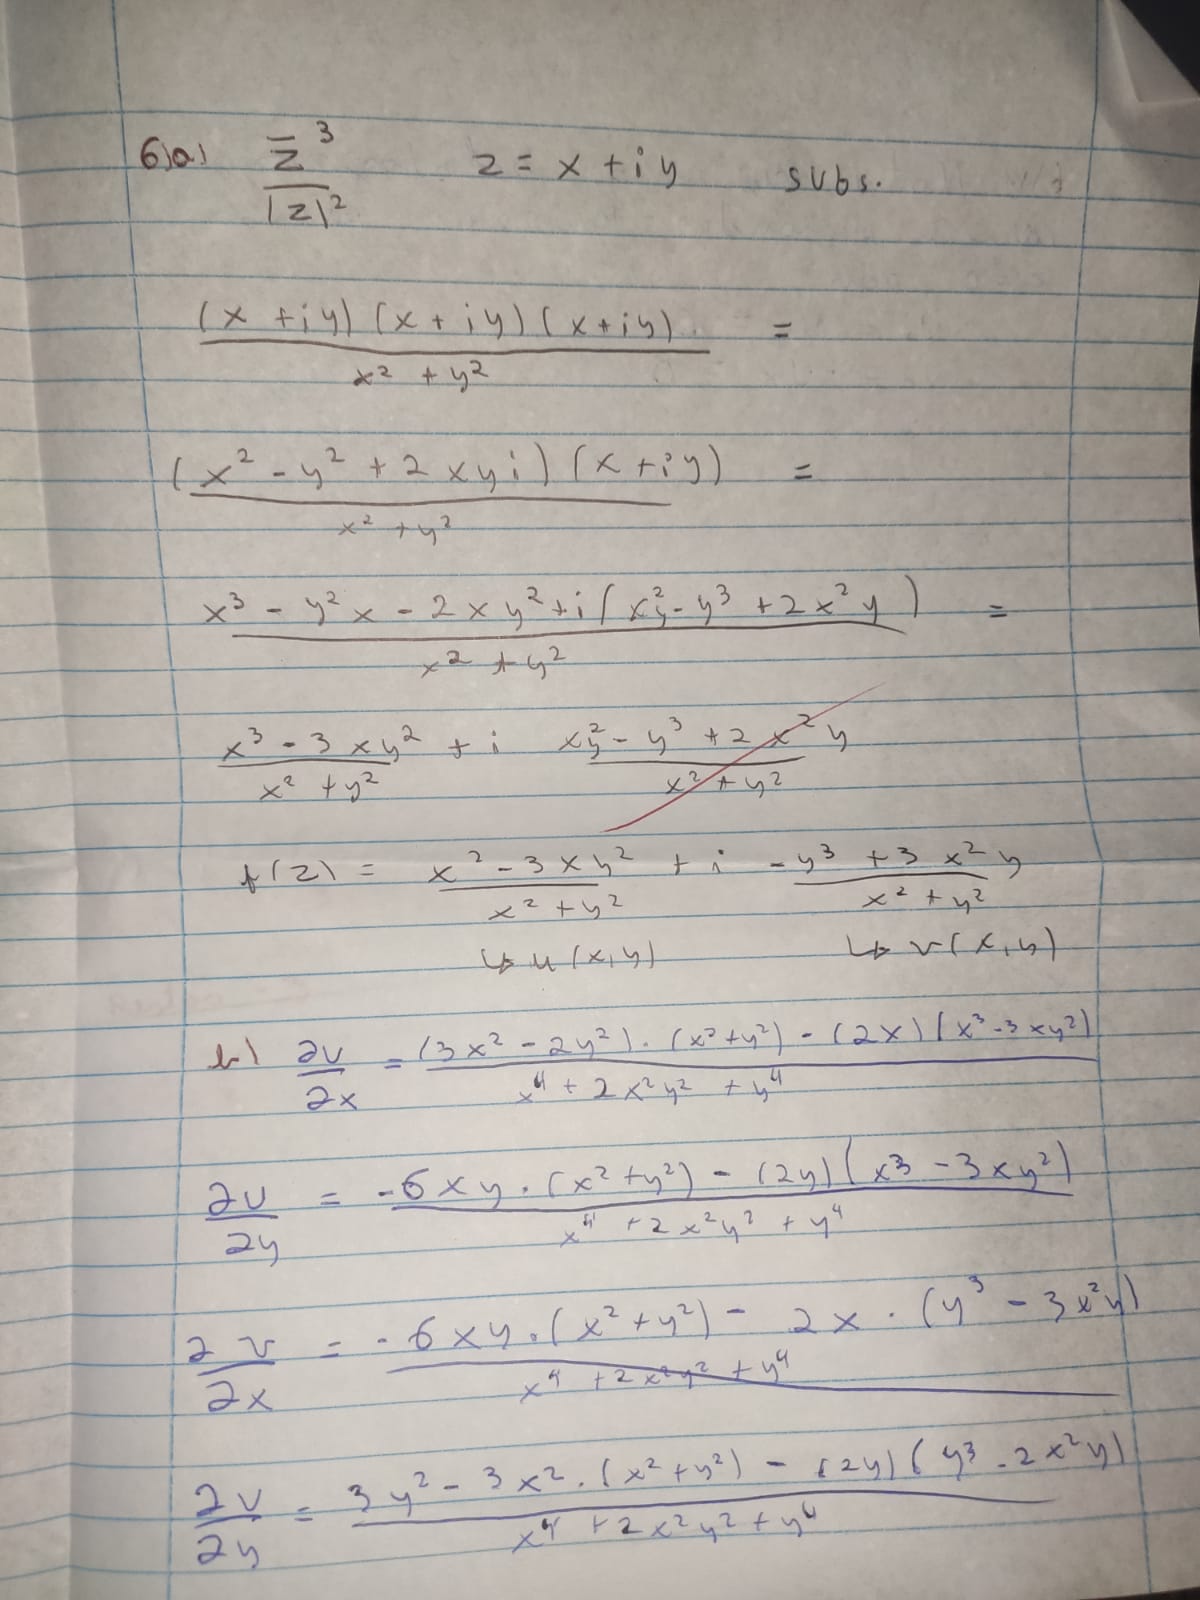 6)a) z̄³/|z|² z = x + iy subs.
(x + iy)(x + iy)(x + iy)/x² + y² =
(x² - y² + 2xyi)(x + iy)/x² + y² =
x³ - y²x - 2xy² + i(x²y - y³ + 2x²y)/x² + y² =
x³ - 3xy²/x² + y² + i x²y - y³ + 2x²y/x² + y²
f(z) = x² - 3xy²/x² + y² + i -y³ + 3x²y/x² + y²
↳ u(x,y) ↳ v(x,y)
b) ∂u/∂x = (3x² - 2y²).(x² + y²) - (2x)(x³ - 3xy²)/x⁴ + 2x²y² + y⁴
∂u/∂y = -6xy.(x² + y²) - (2y)(x³ - 3xy²)/x⁴ + 2x²y² + y⁴
∂v/∂x = -6xy.(x² + y²) - 2x.(y³ - 3x²y)/x⁴ + 2x²y² + y⁴
∂v/∂y = 3y² - 3x².(x² + y²) - (2y)(y³ - 2x²y)/x⁴ + 2x²y² + y⁴